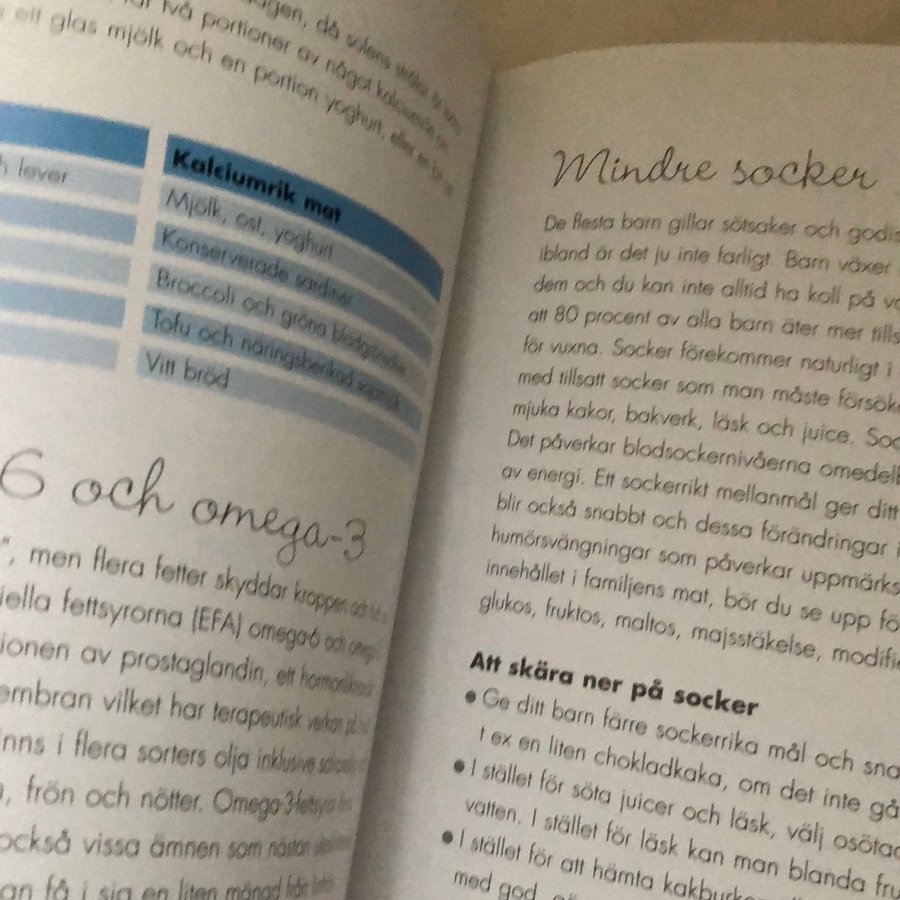 då solens strålar är
två portioner av något kalciumrik
ett glas mjölk och en portion yoghurt, eller en
lever
Kalciumrik mat
Mjölk, ost, yoghurt
Konserverade sardiner
Broccoli och gröna bladgrönsaker
Tofu och näringsberikad sojamjölk
Vitt bröd
6 och omega-3
men flera fetter skyddar kroppen och
fettsyrorna (EFA) omega-6 och omega-3
av prostaglandin, ett hormonliknande
vilket har terapeutisk verkan på
i flera sorters olja inklusive
frön och nötter. Omega-3-fettsyra
också vissa ämnen som nästan
få i sig en liten mängd från
Mindre socker
De flesta barn gillar sötsaker och godis
ibland är det ju inte farligt. Barn växer
dem och du kan inte alltid ha koll på
att 80 procent av alla barn äter mer
för vuxna. Socker förekommer naturligt i
med tillsatt socker som man måste
mjuka kakor, bakverk, läsk och juice.
Det påverkar blodsockernivåerna
av energi. Ett sockerrikt mellanmål ger ditt
blir också snabbt och dessa förändringar i
humörsvängningar som påverkar
innehållet i familjens mat, bör du se upp
glukos, fruktos, maltos, majsstäkelse,
Att skära ner på socker
• Ge ditt barn färre sockerrika mål och
t ex en liten chokladkaka, om det inte
• I stället för söta juicer och läsk, välj
vatten. I stället för läsk kan man blanda
• I stället för att hämta kakburken
med god